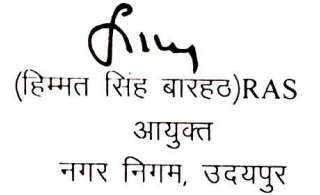 (हिम्मत सिंह बारहठ)RAS
आयुक्त
नगर निगम, उदयपुर